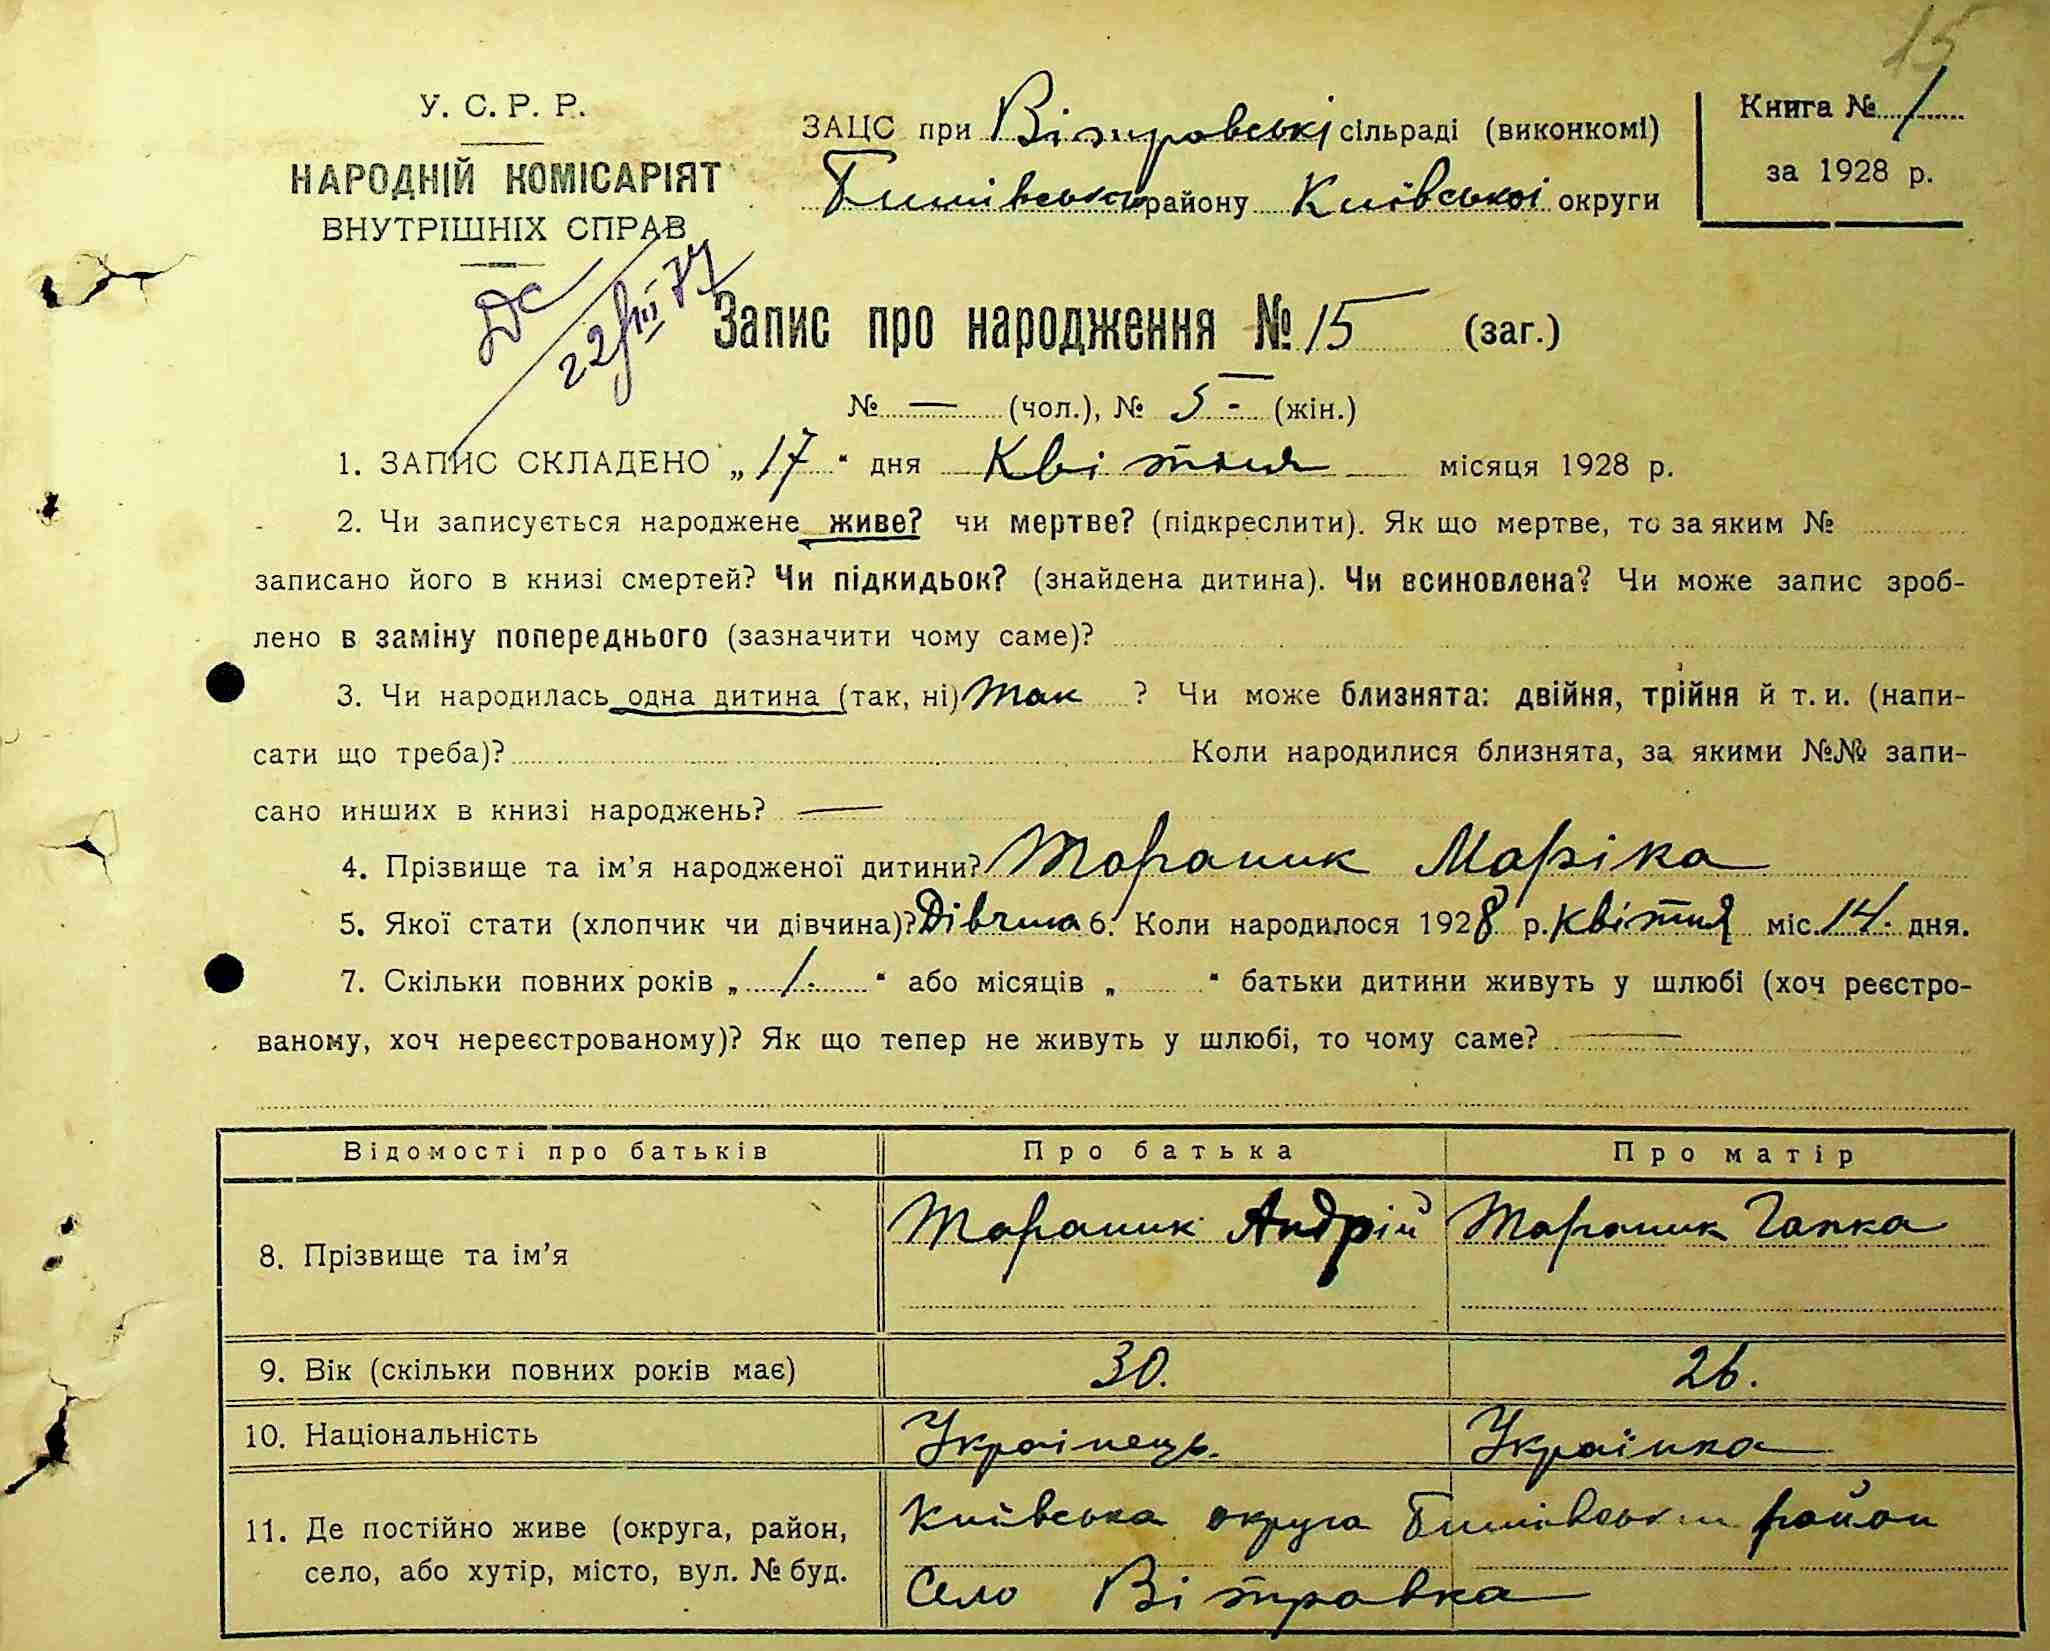 15
У. С. Р. Р.
НАРОДНІЙ КОМІСАРІЯТ
ВНУТРІШНІХ СПРАВ
ЗАЦС при Вітровські сільраді (виконкомі)
Бишівського району Київської округи
Книга № 1
за 1928 р.
ДС
22/III 77
Запис про народження № 15 (заг.)
№ — (чол.), № 5 - (жін.)
1. ЗАПИС СКЛАДЕНО „17“ дня Квітня місяця 1928 р.
2. Чи записується народжене живе? чи мертве? (підкреслити). Як що мертве, то за яким №
записано його в книзі смертей? Чи підкидьок? (знайдена дитина). Чи всиновлена? Чи може запис зроб-
лено в заміну попереднього (зазначити чому саме)?
3. Чи народилась одна дитина (так, ні) так ? Чи може близнята: двійня, трійня й т. и. (напи-
сати що треба)? Коли народилися близнята, за якими №№ запи-
сано инших в книзі народжень? —
4. Прізвище та ім’я народженої дитини? Тараник Маріка
5. Якої стати (хлопчик чи дівчина)? Дівчина 6. Коли народилося 1928 р. квітня міс. 14. дня.
7. Скільки повних років „1.“ або місяців „ “ батьки дитини живуть у шлюбі (хоч реєстро-
ваному, хоч нереєстрованому)? Як що тепер не живуть у шлюбі, то чому саме? —
Відомості про батьків Про батька Про матір
8. Прізвище та ім’я Тараник Андрій Тараник Гапка
9. Вік (скільки повних років має) 30. 26.
10. Національність Українець. Українка
11. Де постійно живе (округа, район, Київська округа Бишівський район
село, або хутір, місто, вул. № буд. Село Вітравка